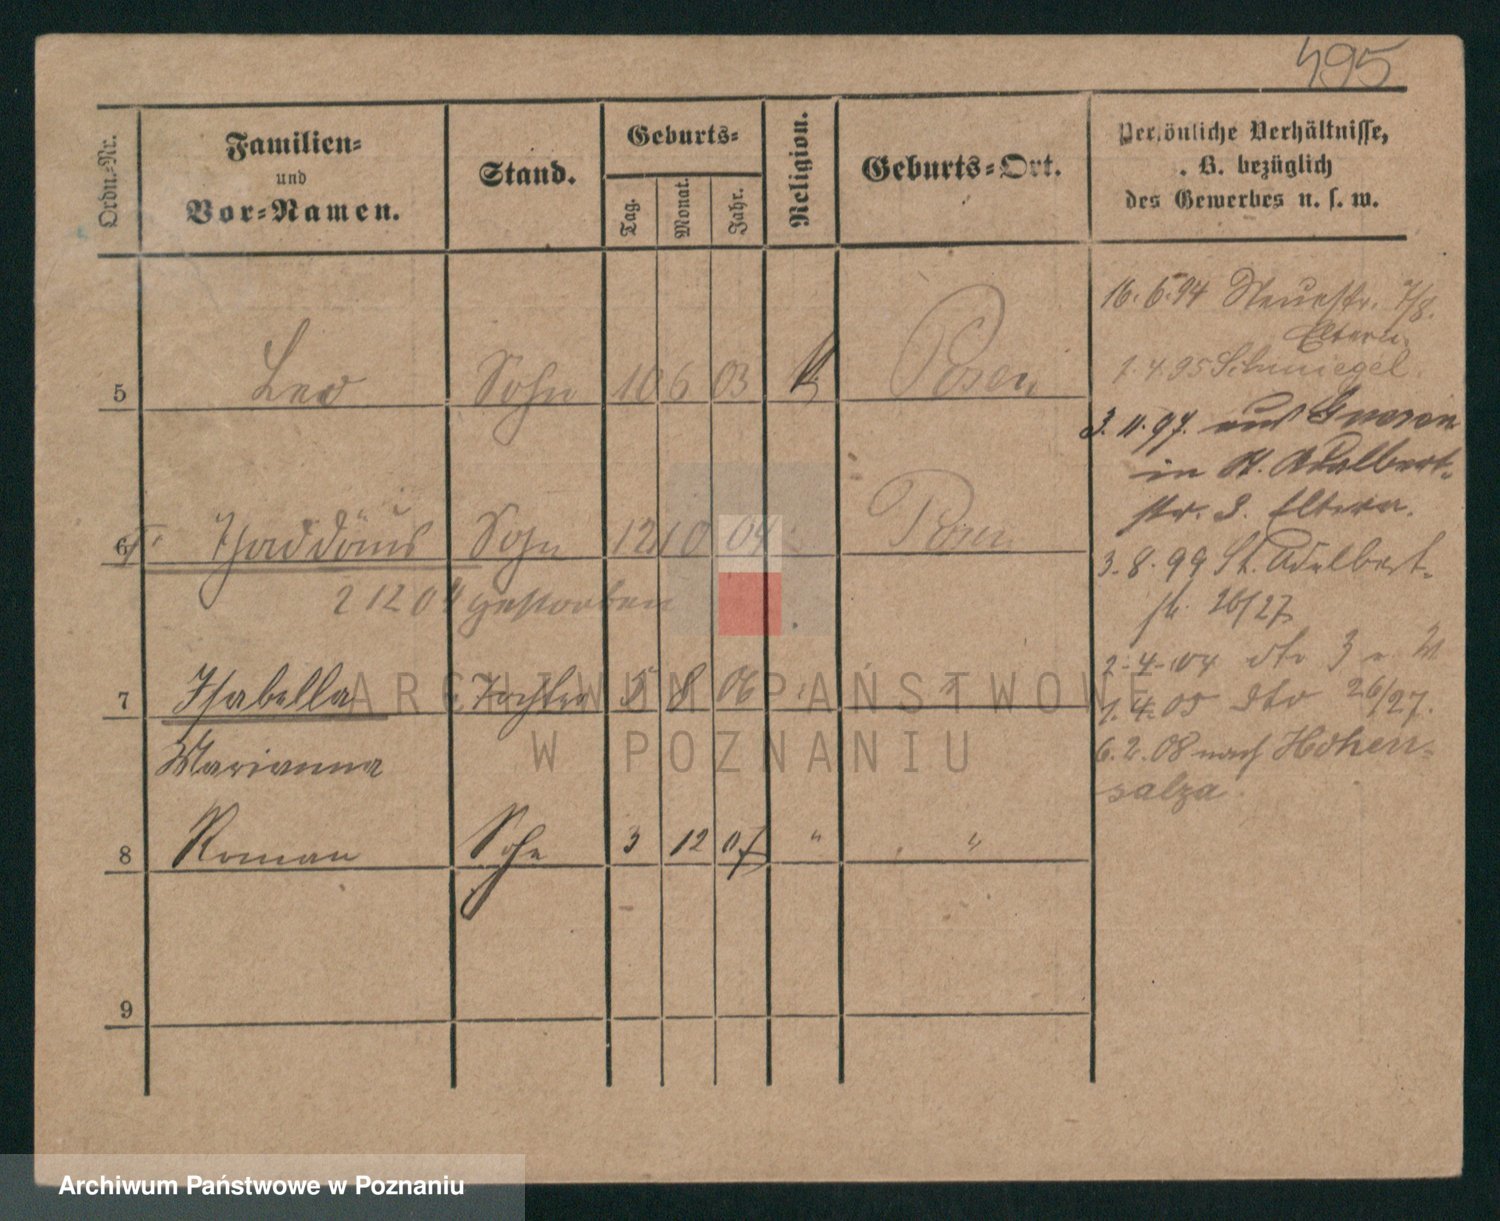 495
Ordn.-Nr.
Familien-
und
Vor-Namen.
Stand.
Geburts-
Tag.
Monat.
Jahr.
Religion.
Geburts-Ort.
Persönliche Verhältnisse,
. B. bezüglich
des Gewerbes u. s. w.
5 Leo Sohn 10 6 03 Posen
6 Thaddäus Sohn 12 10 04 Posen
2 12 04 gestorben
7 Isabella Tochter 5 8 06
Marianna
8 Roman Sohn 3 12 07 " "
9
16.6.94 Neuestr. 7/8.
Eltern.
1.4.95 Schmiegel.
3.11.97. aus Gnesen
in St. Adalbert-
str. 3. Eltern.
3.8.99 St. Adalbert-
str. 26/27
2.4.04 dto 3
1.4.05 dto 26/27.
6.2.08 nach Hohen-
salza.
ARCHIWUM PAŃSTWOWE
W POZNANIU
Archiwum Państwowe w Poznaniu